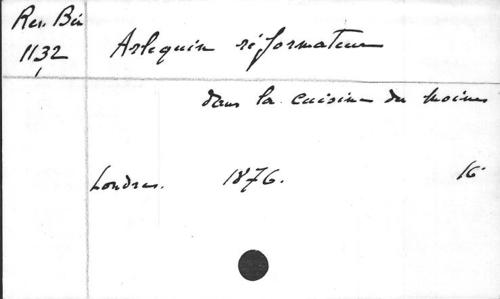 Rev. Bin
1132
Arlequin réformateur
dans la cuisine des moines
Londres. 1876. 16